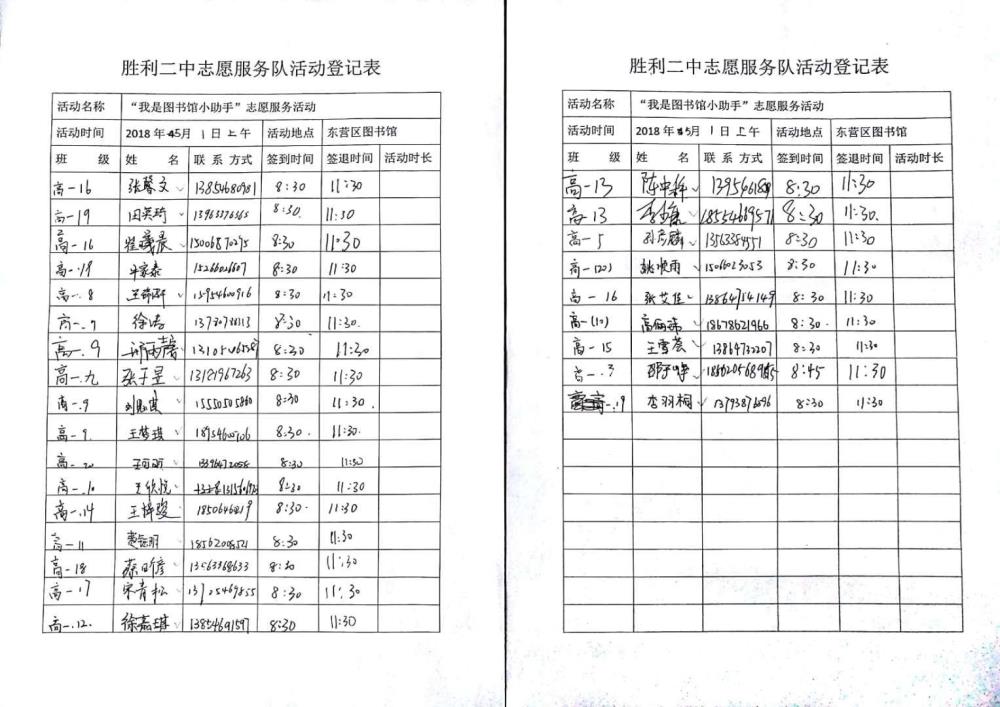 胜利二中志愿服务队活动登记表
活动名称 "我是图书馆小助手"志愿服务活动
活动时间 2018年5月1日上午 活动地点 东营区图书馆
班 级 姓 名 联系方式 签到时间 签退时间 活动时长
高一16 张馨文 13854680981 8:30 11:30
高一19 田英琦 8:30 11:30
高一16 崔曦晨 15006870295 8:30 11:30
高一19 15266026607 8:30 11:30
高一.8 15954600916 8:30 11:30
高一.9 徐涛 8:30 11:30
高一.9 8:30 11:30
高一.九 张子昱 13181967263 8:30 11:30
高一.9 15550505860 8:30 11:30
高一9. 王梦琪 18954600706 8:30 11:30
高一20 王可昕 8:30 11:30
高一.10 王欣悦 8:30 11:30
高一.14 王梓骏 8:30 11:30
高一11 18562008521 8:30 11:30
高一18 蔡昕彦 13563368633 8:30 11:30
高一17 宋青松 8:30 11:30
高一.12. 徐嘉琪 13854691597 8:30 11:30
胜利二中志愿服务队活动登记表
活动名称 "我是图书馆小助手"志愿服务活动
活动时间 2018年5月1日上午 活动地点 东营区图书馆
班 级 姓 名 联系方式 签到时间 签退时间 活动时长
高一13 8:30 11:30
高一13 18554669571 8:30 11:30
高一5 孙彦麟 13563384551 8:30 11:30
高一(20) 姚晓雨 15066023053 8:30 11:30
高一16 张艾佳 13864714149 8:30 11:30
高一(10) 18678621966 8:30 11:30
高一15 王雪荟 13864732207 8:30 11:30
高一.3 8:45 11:30
高一.19 李羽桐 13793876096 8:30 11:30